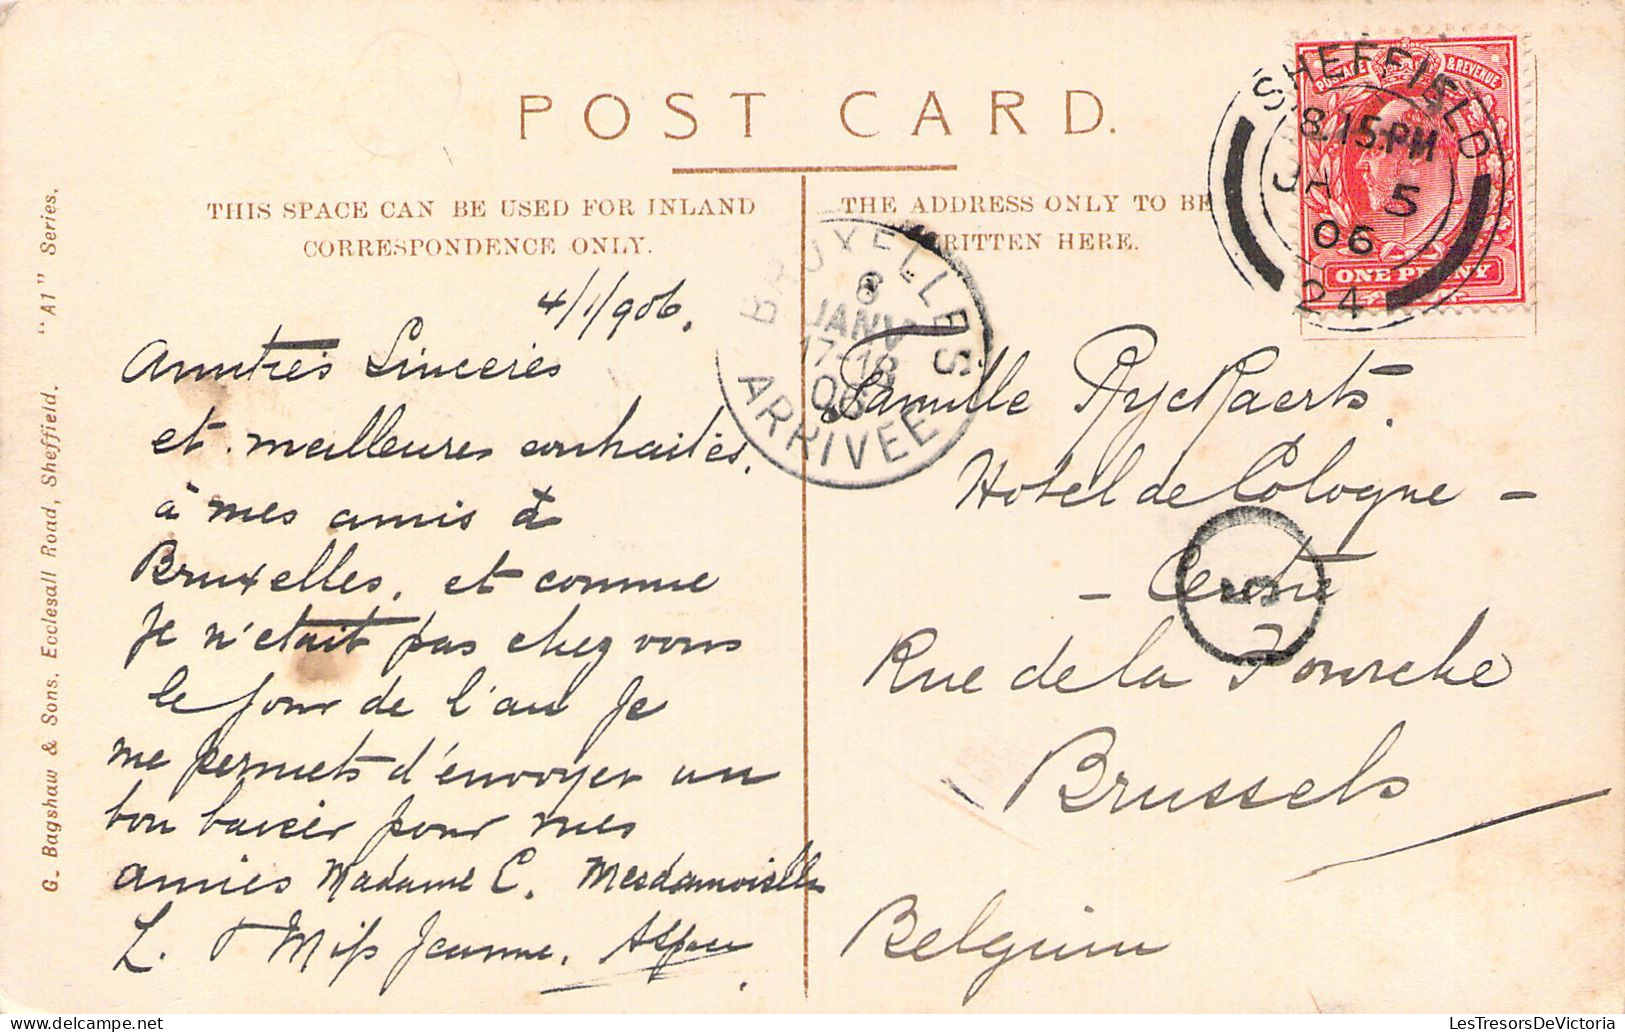 POST CARD.
THIS SPACE CAN BE USED FOR INLAND
CORRESPONDENCE ONLY.
THE ADDRESS ONLY TO BE
WRITTEN HERE.
POSTAGE & REVENUE
ONE PENNY
SHEFFIELD
8.15 PM
JA 5
06
24
BRUXELLES
6
JANV
17-18
06
ARRIVEE
5
4/1/906.
Amitiés Sincères
et meilleures souhaités,
à mes amis à
Bruxelles, et comme
Je n'etait pas chez vous
le jour de l'an Je
me permets d'envoyer un
bon baiser pour mes
amies Madame C. Mesdamoiselles
L. & Miss Jeanne.
Famille Ryckaerts.
Hotel de Cologne -
- Centre
Rue de la Fourche
Brussels
Belgium
G. Bagshaw & Sons. Ecclesall Road, Sheffield. "A1" Series.
LesTresorsDeVictoria